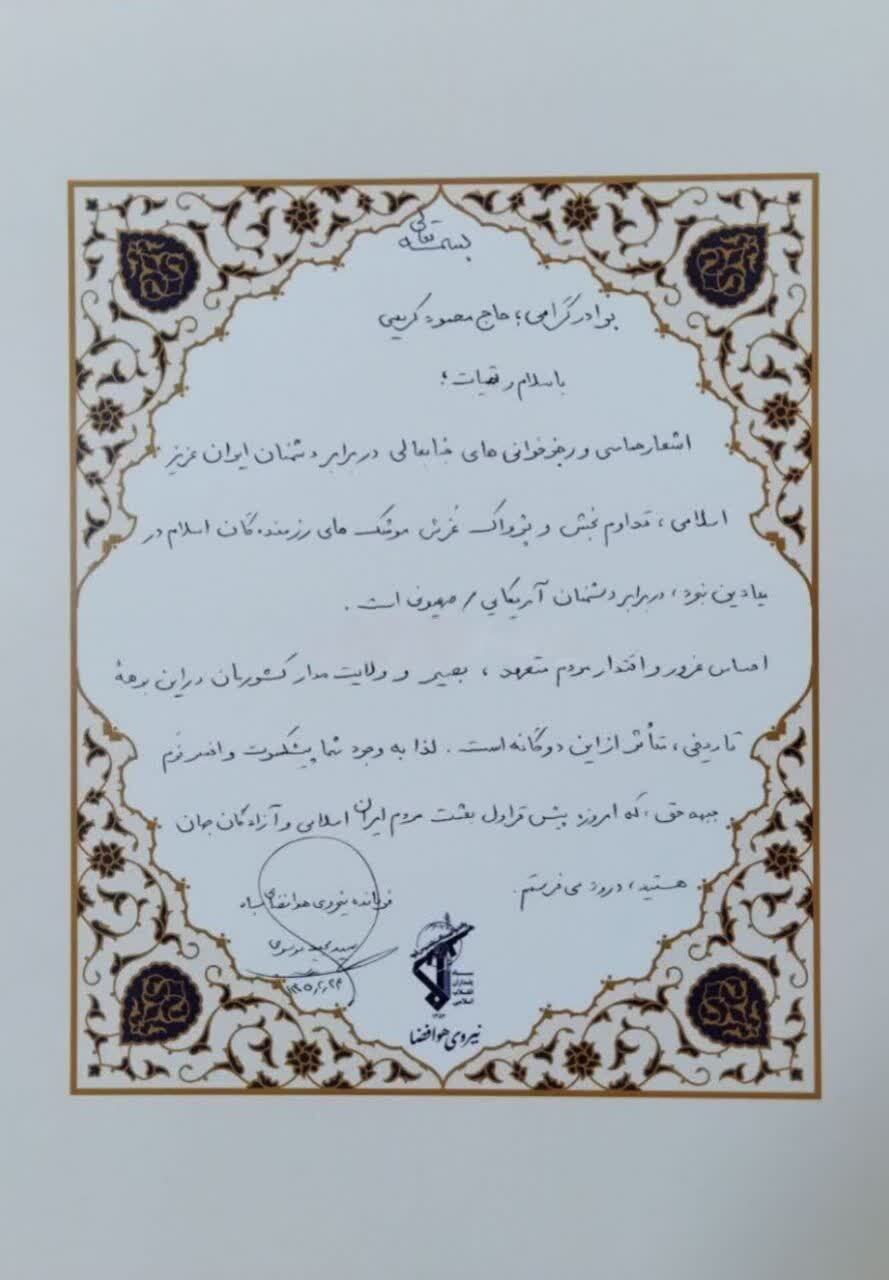 بسمه تعالی
برادر گرامی؛ حاج محمود کریمی
با سلام و تحیات؛
اشعار حماسی و رجزخوانی های جنابعالی در برابر دشمنان ایران عزیز
اسلامی، تداوم بخش و پژواک غُرش موشک های رزمندگان اسلام در
میادین نبرد، در برابر دشمنان آمریکایی / صهیونی است.
احساس غرور و اقتدار مردم متعهد، بصیر و ولایت مدار کشورمان در این برههٔ
تاریخی، متأثر از این دوگانه است. لذا به وجود شما پیشکسوت و افسر
جبهه حق، که امروزه پیش قراول بعثت مردم ایران اسلامی و آزادگان جهان
هستید، درود می فرستم.
فرمانده نیروی هوافضای سپاه
سید مجید موسوی
۱۴۰۵,۲,۲۴
سپاه
پاسداران
انقلاب
اسلامی
نیروی هوافضا